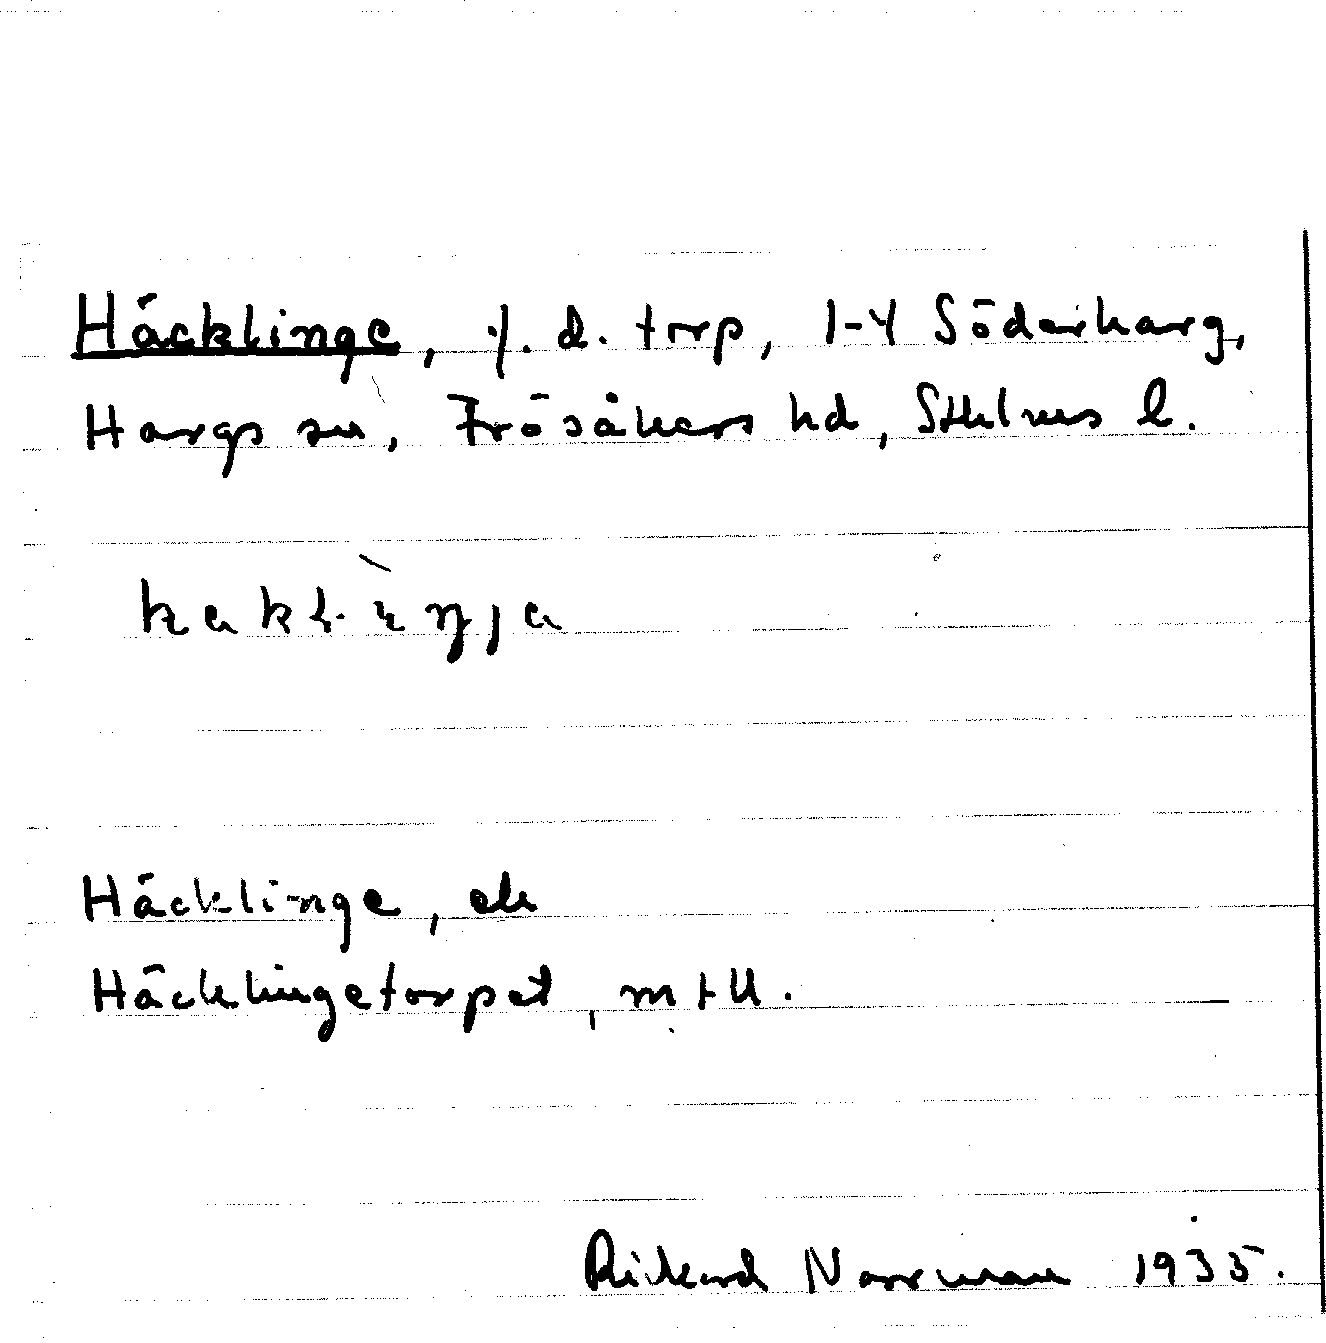 Häcklinge, f. d. torp, 1-4 Söderharg,
Hargs sn, Frösåkers hd, Sthlms l.
Häcklinge, ek
Häcklingetorpet, mtll.
Rickard Norrman 1935.